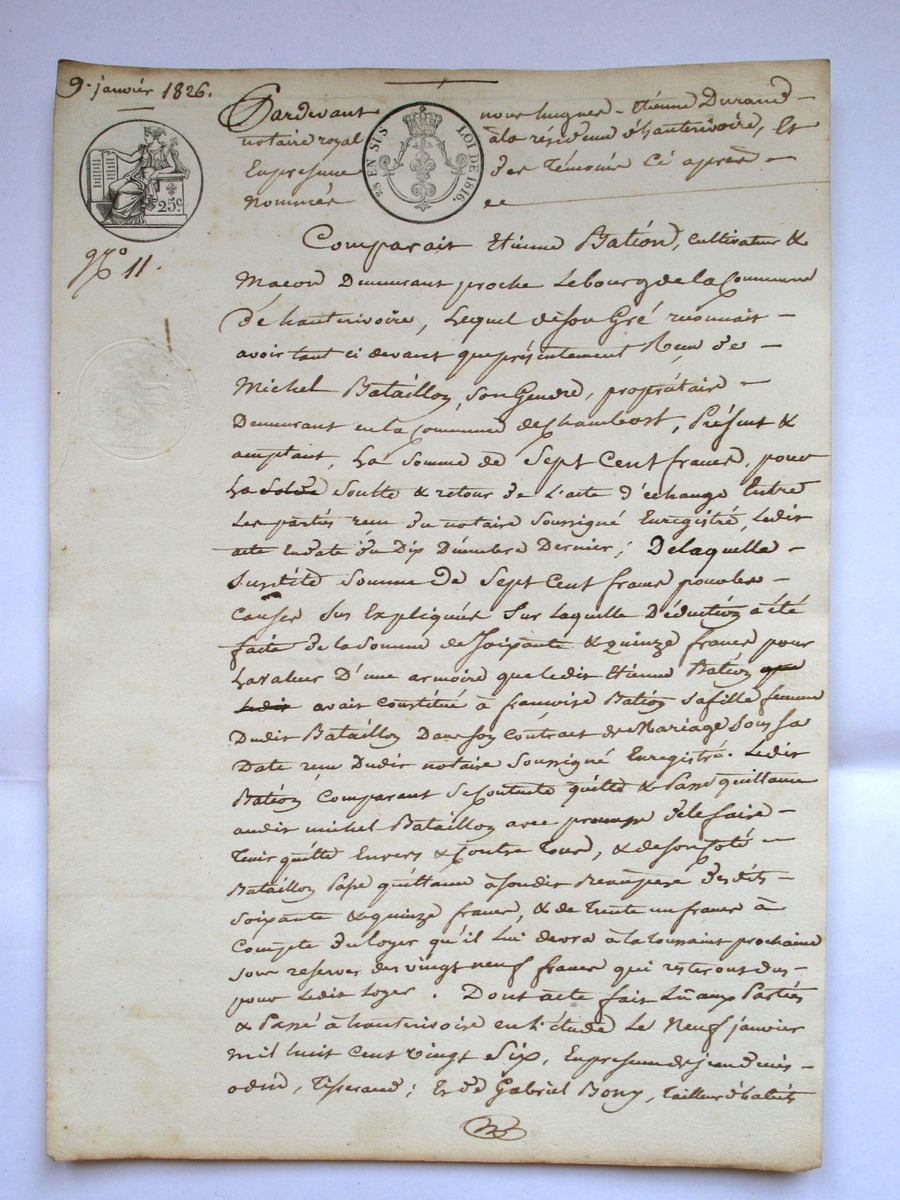 9. janvier 1826.
Pardevant nous hugues-Etienne Durand
notaire royal à la résidence d'hauterivoire, Et
En presence des Témoins Ci après
Nommés
25 EN SUS
LOI DE 1816.
25c
N.o 11.
Comparait Etienne Bation, cultivateur &
Macon Demeurant proche Le bourg de la Commune
d'hauterivoire, Lequel de son Gré reconnait
avoir tant ci devant que présentement Reçu de
Michel Bataillon, son Gendre, propriétaire
Demeurant en la Commune de Chambost, Présent &
acceptant, La Somme de Sept Cent francs, pour
La Solde Soulte & retour de L'acte d'échange Entre
Les parties reçu du notaire Soussigné Enregistré, Ledit
acte En date du Dix Décembre Dernier; De laquelle
Susdite Somme de Sept Cent francs pour les
causes Sus Expliquées Sur Laquelle Déduction a été
faite de la Somme de Soixante & quinze francs pour
La valeur D'une armoire que ledit Etienne Bation que
Ledit avait Constitué à francoise Bation Sa fille femme
Dudit Bataillon Dans son Contract de Mariage Sous Sa
Date reçu Dudit notaire Soussigné Enregistré. Ledit
Bation Comparant Se Contente quitte & Passe quittance
audit michel Bataillon avec promesse de le faire
Tenir quitte Envers & Contre Tous, & de son Coté
Bataillon Passe quittance à Sondit Beaupere Desdits
Soixante & quinze francs, & de Trente un francs à
Compte du loyer qu'il Lui devra à la toussaint prochaine
Sous reserves des vingt neuf francs qui resteront dus
pour Ledit Loyer. Dont acte fait Lu aux Parties
& Passé à hauterivoire en l'étude Le Neuf janvier
mil huit Cent vingt Six, En presence de jean denis
odin, Tisserand; Et de Gabriel Bony, Tailleur d'habits